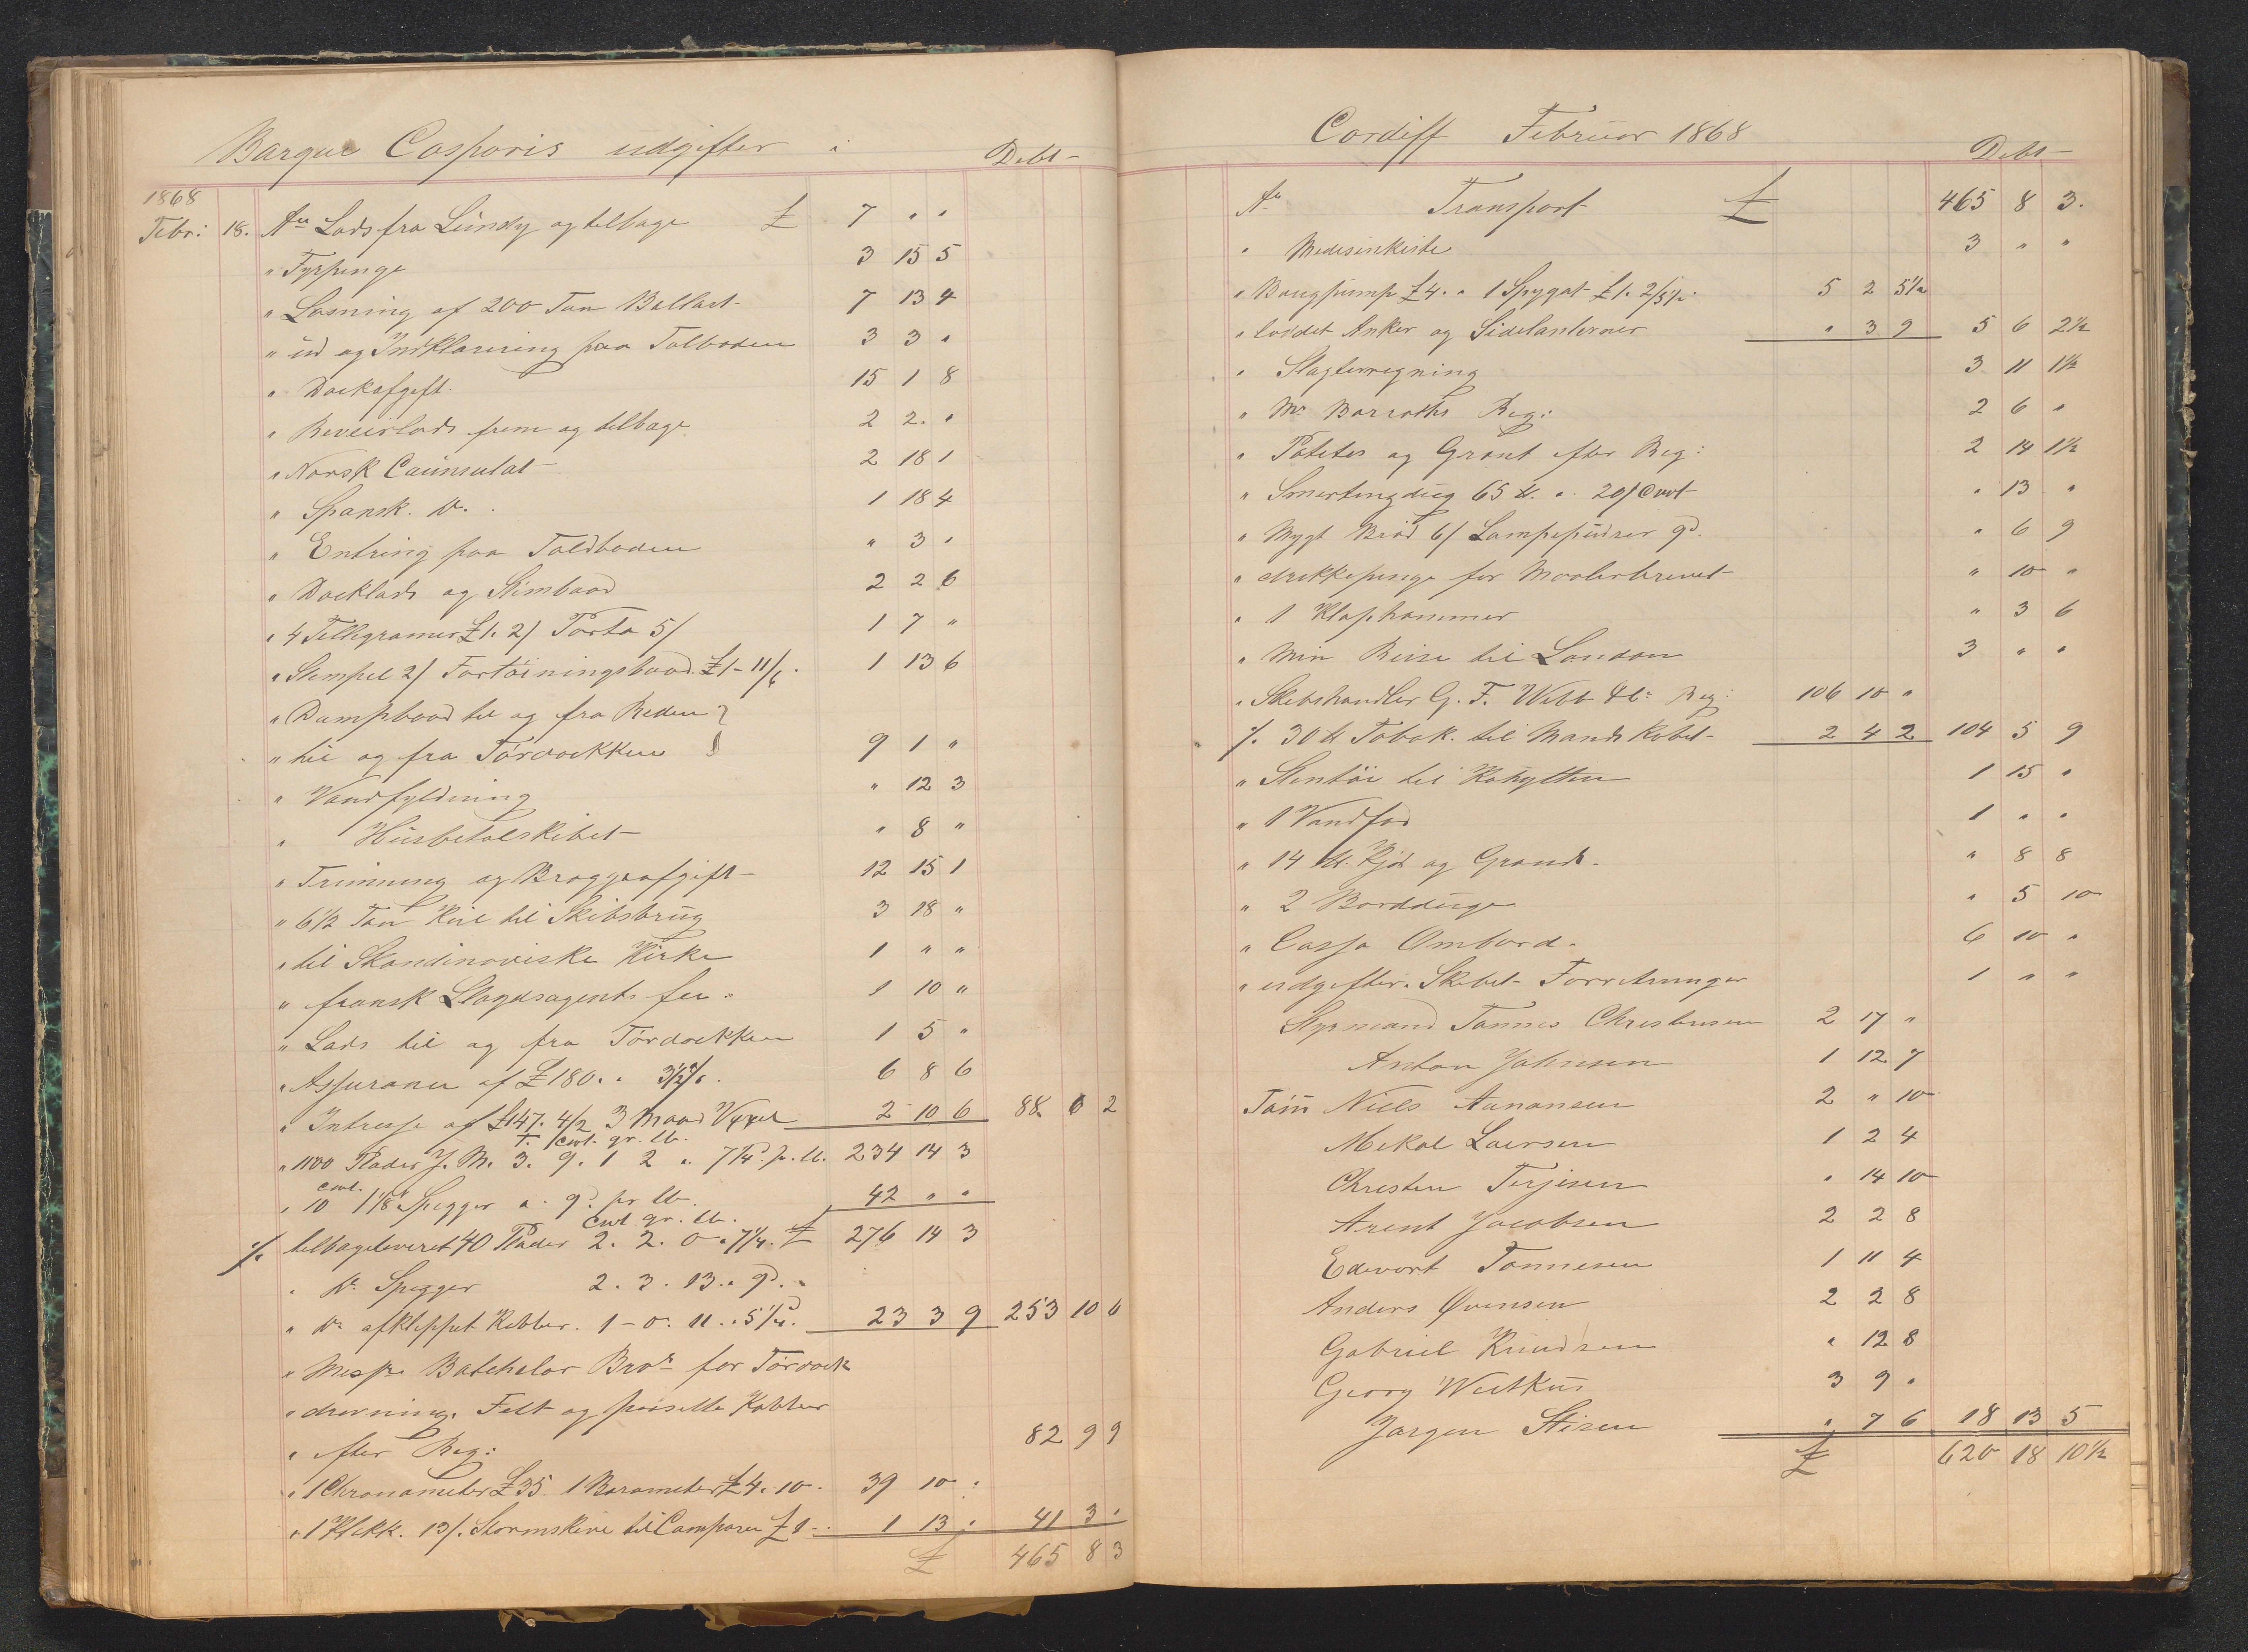 Barque Casparis udgifter i
Debt
1868
Febr: 18. An Lods fra Lundy og telbage £ 7 " "
" Fyrpenge 3 15 5
" Losning af 200 Ton Ballast 7 13 4
" ud og Indklarering paa Tolboden 3 3 "
" Dockafgift 15 1 8
" Reveirlods frem og telbage 2 2 "
" Norsk Counsulat 2 18 1
" Spansk Do. 1 18 4
" Entring paa Toldboden " 3 "
" Docklods og Stimbaad 2 2 6
" 4 Tellegramer £1. 2/ Porto 5/ 1 7 "
" Stempel 2/ Fortöiningsbaad £1-11/6. 1 13 6
" Dampbaad til og fra Reden }
" til og fra Tördockken } 9 1 "
" Vandfyldning " 12 3
" Husbetalskibet " 8 "
" Trimning og Bryggeafgift 12 15 1
" 6 1/2 Ton Kul til Skibsbrug 3 18 "
" til Skandinaviske Kirke 1 " "
" fransk Slagdsagents fee " 1 10 "
" Lods til og fra Tördockken 1 5 "
" Assurance af £180. " 3 1/2 % 6 8 6
" Intresse af £147. 4/2 3 Maand Vexel 2 10 6 88 6 2
T. Cwt. qr. lb.
" 1100 Plader J. M. 3. 9. 1 2 " 7 1/4 d. p. lb. 234 14 3
cwt.
" 10 1 1/8" Spigger a 9 d. pr lb. 42 " "
Cwt qr. lb.
% telbageleveret 40 Plader 2. 2. 0 " 7 1/4. £ 276 14 3
" Do. Spigger 2. 3. 13. " 9 d. "
" Do. afkleppet Kobber. 1-0. 11. " 5 1/4. 23 3 9 253 10 6
" Messrs Batchelor Bros for Tördock
" drevning. Felt og Kobber
" efter Reg: 82 9 9
" 1 Chronometer £35. 1 Barometer £4. 10. 39 10 "
" 1 Klokk. 13/. Stormskive til Campasen £1 1 13 " 41 3 "
£ 465 8 3
Cardiff Februar 1868
Debt
An Transport £ 465 8 3.
" Medesinkiste 3 " "
" Bougpump £4. " 1 Spygat £1. 2/5 1/2. 5 2 5 1/2
" loddet Anker og Sidelanterner " 3 9 5 6 2 1/2
" Slagterregning 3 11 1 1/2
" Mr Reg: 2 6 "
" Poteter og Grönt efter Reg: 2 14 1 1/2
" Smertingdug 65 lb. a. 20/ Cwt " 13 "
" Mygt Bröd 6/ Lampepudser 9 d. " 6 9
" drikkepenge for Maalerbrevet " 10 "
" 1 Klaphammer " 3 6
" Min Reise til London 3 " "
" Skibshandler G. F. Webb & Co. Reg: 106 10 "
% 30 lb Tobak. til Mandskabet 2 4 2 104 5 9
" Stentöi til Kahytten 1 15 "
" 1 Vandfad 1 " "
" 14 lb. Kjöd og Grönt. " 8 8
" 2 Bordduge " 5 10
" Cassa Ombord. 6 10 "
" udgifter i Skibets Forretninger 1 " "
Styrmand Tönnes Christensen 2 17 "
Anton Johnsen 1 12 7
Töm Niels Aanonsen 2 " 10
Mekal Laersen 1 2 4
Christen Terjesen " 14 10
Arent Jacobsen 2 2 8
Edevart Tönnesen 1 11 4
Anders Ovensen 2 2 8
Gabriel Knudsen " 12 8
Georg Westkus 3 9 "
Jörgen Stisen " 7 6 18 13 5
£ 620 18 10 1/2